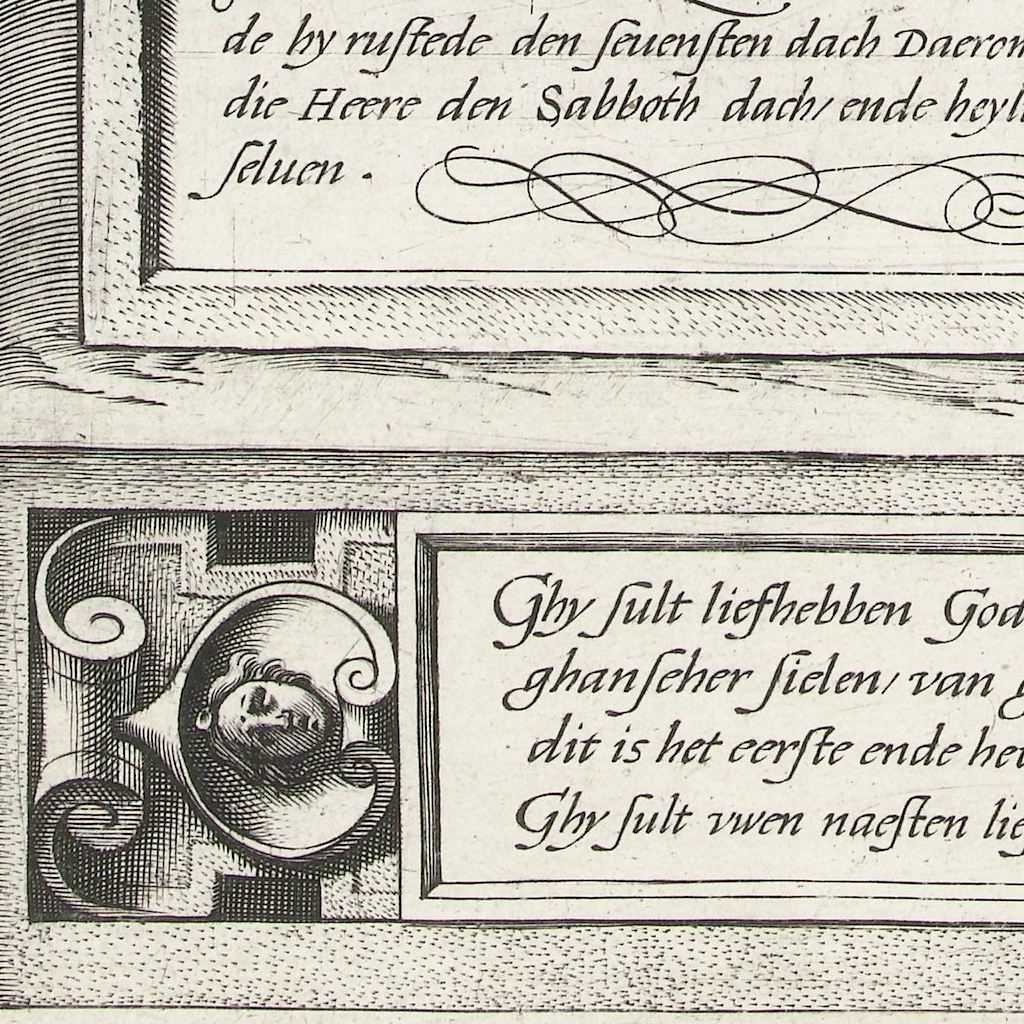 de hy rustede den seuensten dach Daerom
die Heere den Sabboth dach/ ende heyli
seluen.
Ghy sult liefhebben God
ghanseher sielen/ van g
dit is het eerste ende het
Ghy sult vwen naesten lief